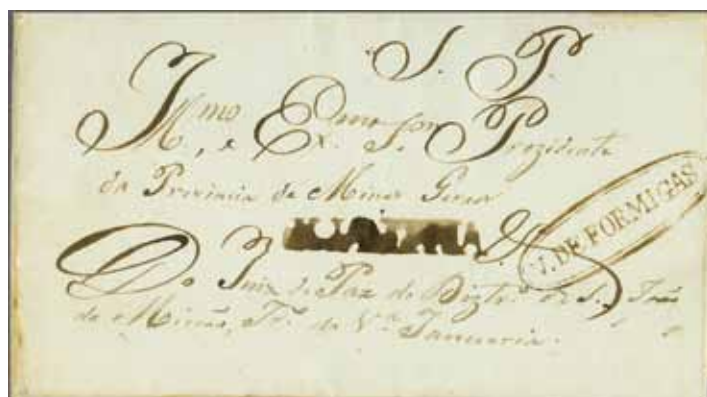 S. P.
Illmo, e Exmo Snr Prezidente
da Provincia de Minas Geraes
V. DE FORMIGAS
Do Juiz de Paz do Deztº de S. João
da Missão, Tº da Vª Januaria.